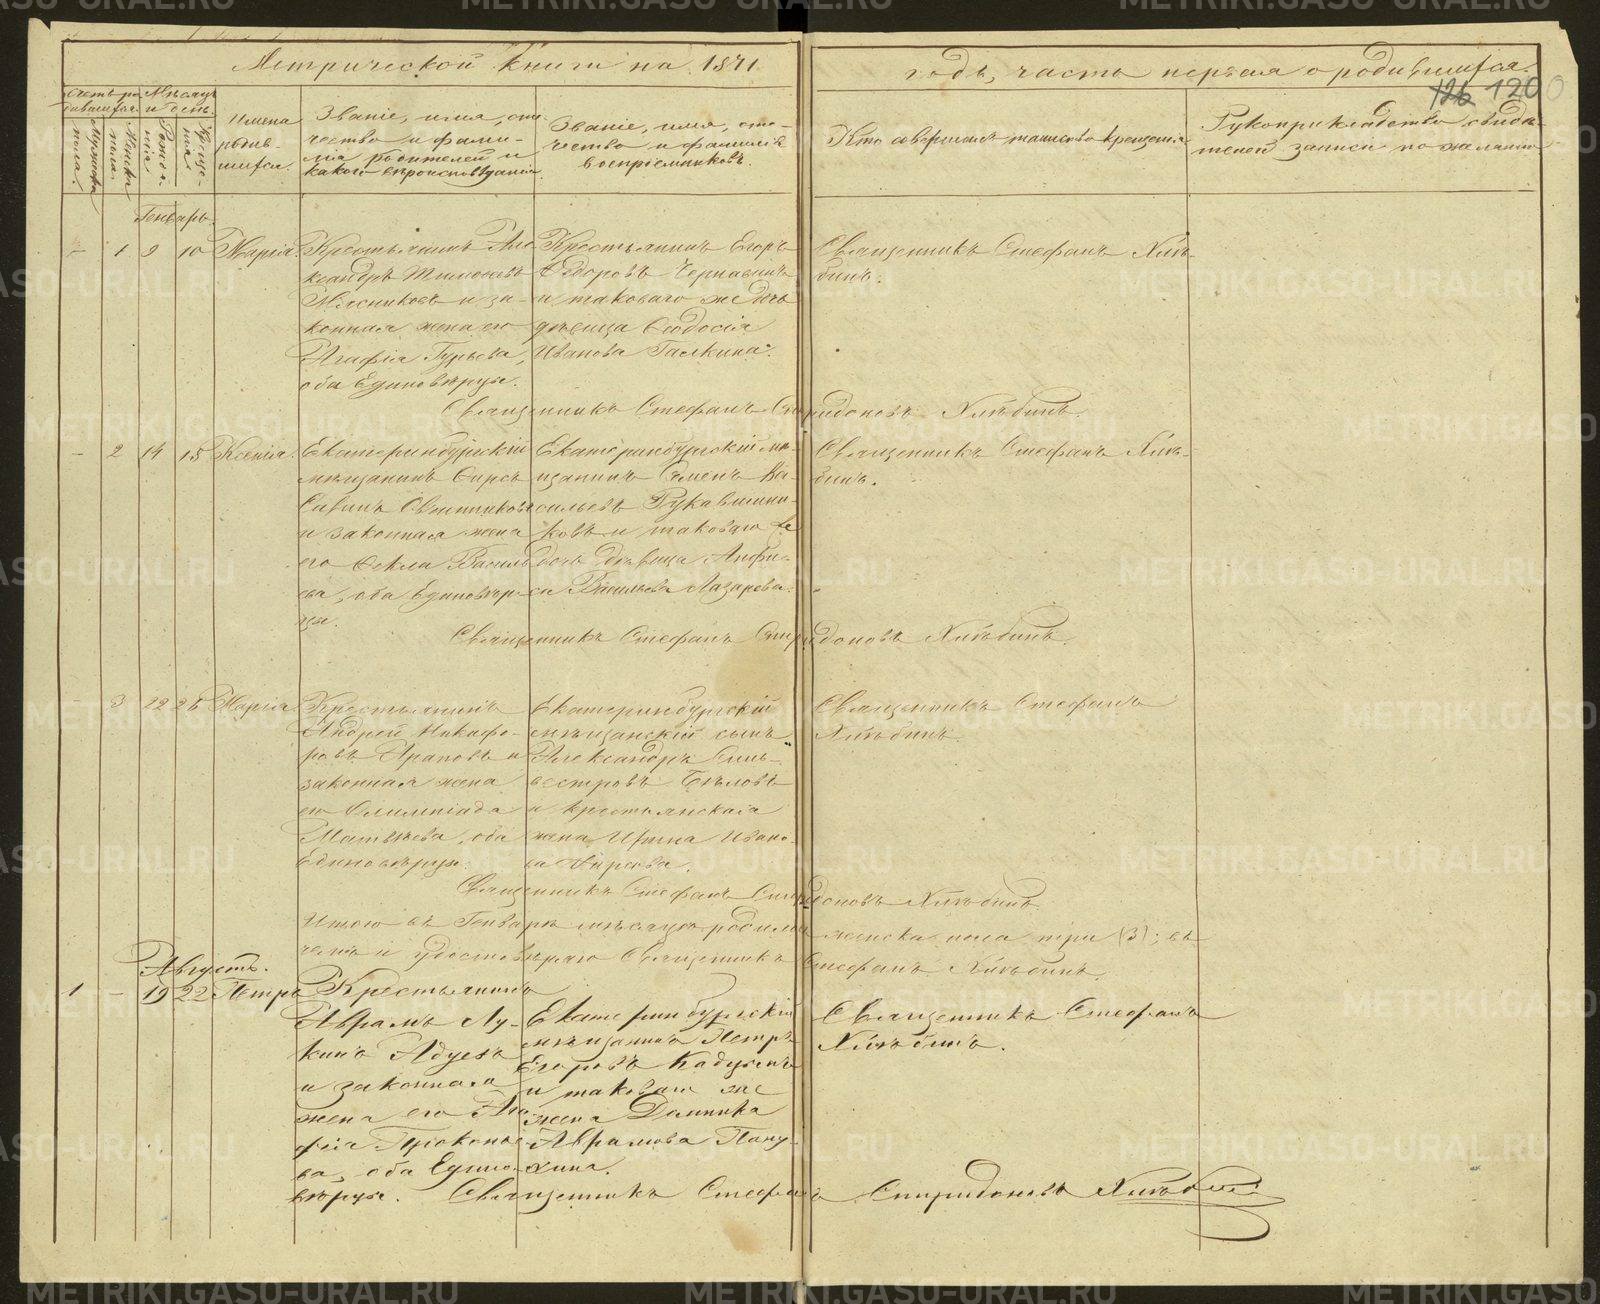 Метрической книги на 1871
годъ, часть первая о родившихся.
126 120
Счетъ ро-
дившихся.
Мѣсяцъ
и день.
Мужска
пола.
Женска
пола.
Рожде-
нія.
Креще-
нія.
Имена
родив-
шихся.
Званіе, имя, оте-
чество и фами-
лія родителей и
какого вѣроисповѣданія
Званіе, имя, оте-
чество и фамилія
воспріемниковъ.
Кто совершалъ таинство крещенія
Рукоприкладство свидѣ-
телей записи по желанію
Генварь.
- 1 9 10 Марія.
Крестьянинъ Але-
ксандръ Тимофеевъ
Мясниковъ и за-
конная жена его
Агафія Гурьева,
оба Единовѣрцы.
Крестьянинъ Егоръ
Ѳедоровъ Чернавинъ
и таковаго же дочь
дѣвица Ѳеодосія
Иванова Галкина.
Священникъ Стефанъ Хлѣ-
бинъ.
Священникъ Стефанъ Спиридоновъ Хлѣбинъ.
- 2 14 15 Ксенія.
Екатеринбургскій
мѣщанинъ Ѳирсъ
Савинъ
и законная жена
его Ѳекла Василь-
ева, оба Единовѣр-
цы.
Екатеринбургскій мѣ-
щанинъ Семенъ Ва-
сильевъ Рукавишни-
ковъ и таковаго же
дочь дѣвица Анфи-
са Васильева Лазарева.
Священникъ Стефанъ Хлѣ-
бинъ.
Священникъ Стефанъ Спиридоновъ Хлѣбинъ.
- 3 22 25 Марія
Крестьянинъ
Андрей Никифо-
ровъ Араповъ и
законная жена
его Олимпіада
Матвѣева, оба
Единовѣрцы.
Екатеринбургскій
мѣщанскій сынъ
Александръ Силь-
вестровъ Бѣловъ
и крестьянская
жена Ирина Ивано-
ва
Священникъ Стефанъ
Хлѣбинъ.
Священникъ Стефанъ Спиридоновъ Хлѣбинъ.
Итого въ Генварѣ мѣсяцѣ родилось женска пола три (3); въ
чемъ и удостовѣряю Священникъ Стефанъ Хлѣбинъ.
Августъ.
1 - 19 22 Петръ
Крестьянинъ
Аврамъ Лу-
кинъ Адуевъ
и законная
жена его Ага-
фія Прокопье-
ва, оба Едино-
вѣрцы.
Екатеринбургскій
мѣщанинъ Петръ
Егоровъ Кадушинъ
и таковаго же
жена Домника
Аврамова Пану-
хина.
Священникъ Стефанъ
Хлѣбинъ.
Священникъ Стефанъ Спиридоновъ Хлѣбинъ
METRIKI.GASO-URAL.RU